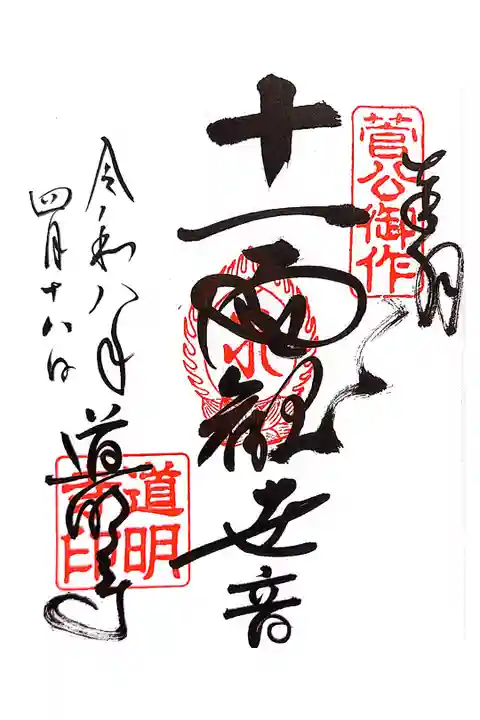 奉拝
菅公御作
十一面観世音
道明寺
道明寺印
令和八年
四月十八日